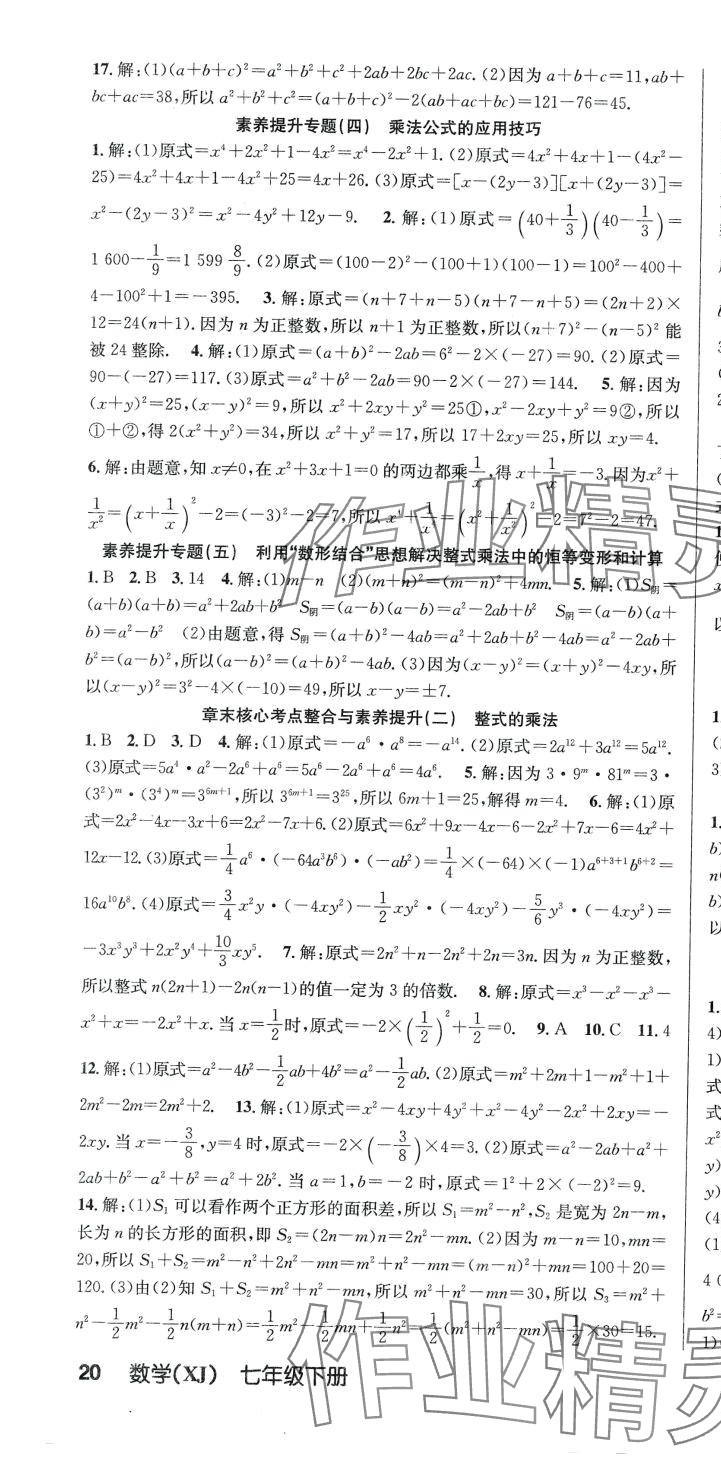 17.解:(1)(a+b+c)²=a²+b²+c²+2ab+2bc+2ac.(2)因为a+b+c=11,ab+
bc+ac=38,所以a²+b²+c²=(a+b+c)²-2(ab+ac+bc)=121-76=45.
素养提升专题(四) 乘法公式的应用技巧
1.解:(1)原式=x⁴+2x²+1-4x²=x⁴-2x²+1.(2)原式=4x²+4x+1-(4x²-
25)=4x²+4x+1-4x²+25=4x+26.(3)原式=[x-(2y-3)][x+(2y-3)]=
x²-(2y-3)²=x²-4y²+12y-9. 2.解:(1)原式=(40+1/3)(40-1/3)=
1 600-1/9=1 599 8/9.(2)原式=(100-2)²-(100+1)(100-1)=100²-400+
4-100²+1=-395. 3.解:原式=(n+7+n-5)(n+7-n+5)=(2n+2)×
12=24(n+1).因为n为正整数,所以n+1为正整数,所以(n+7)²-(n-5)²能
被24整除. 4.解:(1)原式=(a+b)²-2ab=6²-2×(-27)=90.(2)原式=
90-(-27)=117.(3)原式=a²+b²-2ab=90-2×(-27)=144. 5.解:因为
(x+y)²=25,(x-y)²=9,所以x²+2xy+y²=25①,x²-2xy+y²=9②,所以
①+②,得2(x²+y²)=34,所以x²+y²=17,所以17+2xy=25,所以xy=4.
6.解:由题意,知x≠0,在x²+3x+1=0的两边都乘1/x,得x+1/x=-3.因为x²+
1/x²=(x+1/x)²-2=(-3)²-2=7,所以x⁴+1/x⁴=(x²+1/x²)²-2=7²-2=47.
素养提升专题(五) 利用“数形结合”思想解决整式乘法中的恒等变形和计算
1.B 2.B 3.14 4.解:(1)m-n (2)(m+n)²=(m-n)²+4mn. 5.解:(1)S阴=
(a+b)(a+b)=a²+2ab+b² S阴=(a-b)(a-b)=a²-2ab+b² S阴=(a-b)(a+
b)=a²-b² (2)由题意,得S阴=(a+b)²-4ab=a²+2ab+b²-4ab=a²-2ab+
b²=(a-b)²,所以(a-b)²=(a+b)²-4ab.(3)因为(x-y)²=(x+y)²-4xy,所
以(x-y)²=3²-4×(-10)=49,所以x-y=±7.
章末核心考点整合与素养提升(二) 整式的乘法
1.B 2.D 3.D 4.解:(1)原式=-a⁶·a⁸=-a¹⁴.(2)原式=2a¹²+3a¹²=5a¹².
(3)原式=5a⁴·a²-2a⁶+a⁶=5a⁶-2a⁶+a⁶=4a⁶. 5.解:因为3·9ᵐ·81ᵐ=3·
(3²)ᵐ·(3⁴)ᵐ=3⁶ᵐ⁺¹,所以3⁶ᵐ⁺¹=3²⁵,所以6m+1=25,解得m=4. 6.解:(1)原
式=2x²-4x-3x+6=2x²-7x+6.(2)原式=6x²+9x-4x-6-2x²+7x-6=4x²+
12x-12.(3)原式=1/4a⁶·(-64a³b⁶)·(-ab²)=1/4×(-64)×(-1)a⁶⁺³⁺¹b⁶⁺²=
16a¹⁰b⁸.(4)原式=3/4x²y·(-4xy²)-1/2xy²·(-4xy²)-5/6y³·(-4xy²)=
-3x³y³+2x²y⁴+10/3xy⁵. 7.解:原式=2n²+n-2n²+2n=3n.因为n为正整数,
所以整式n(2n+1)-2n(n-1)的值一定为3的倍数. 8.解:原式=x³-x²-x³-
x²+x=-2x²+x.当x=1/2时,原式=-2×(1/2)²+1/2=0. 9.A 10.C 11.4
12.解:(1)原式=a²-4b²-1/2ab+4b²=a²-1/2ab.(2)原式=m²+2m+1-m²+1+
2m²-2m=2m²+2. 13.解:(1)原式=x²-4xy+4y²+x²-4y²-2x²+2xy=-
2xy.当x=-3/8,y=4时,原式=-2×(-3/8)×4=3.(2)原式=a²-2ab+a²+
2ab+b²-a²+b²=a²+2b².当a=1,b=-2时,原式=1²+2×(-2)²=9.
14.解:(1)S₁可以看作两个正方形的面积差,所以S₁=m²-n²,S₂是宽为2n-m,
长为n的长方形的面积,即S₂=(2n-m)n=2n²-mn.(2)因为m-n=10,mn=
20,所以S₁+S₂=m²-n²+2n²-mn=m²+n²-mn=(m-n)²+mn=100+20=
120.(3)由(2)知S₁+S₂=m²+n²-mn=30,所以m²+n²-mn=30.所以S₃=m²+
n²-1/2m²-1/2n(m+n)=1/2m²-1/2mn+1/2n²=1/2(m²+n²-mn)=1/2×30=15.
20 数学(XJ) 七年级下册
作业精灵
作业精灵